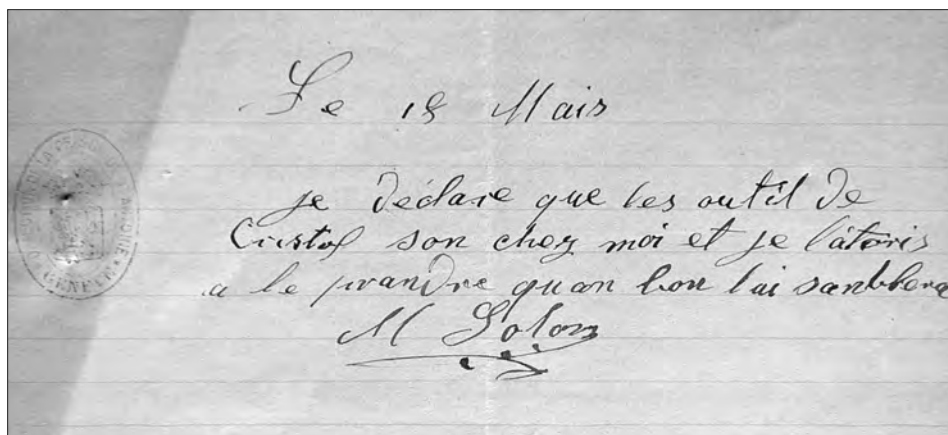 Le 18 Mais
je déclare que les outil de
Cristol son chez moi et je l'atoris
a le prandre quan bon lai sanblera
M Solom
GENEVE